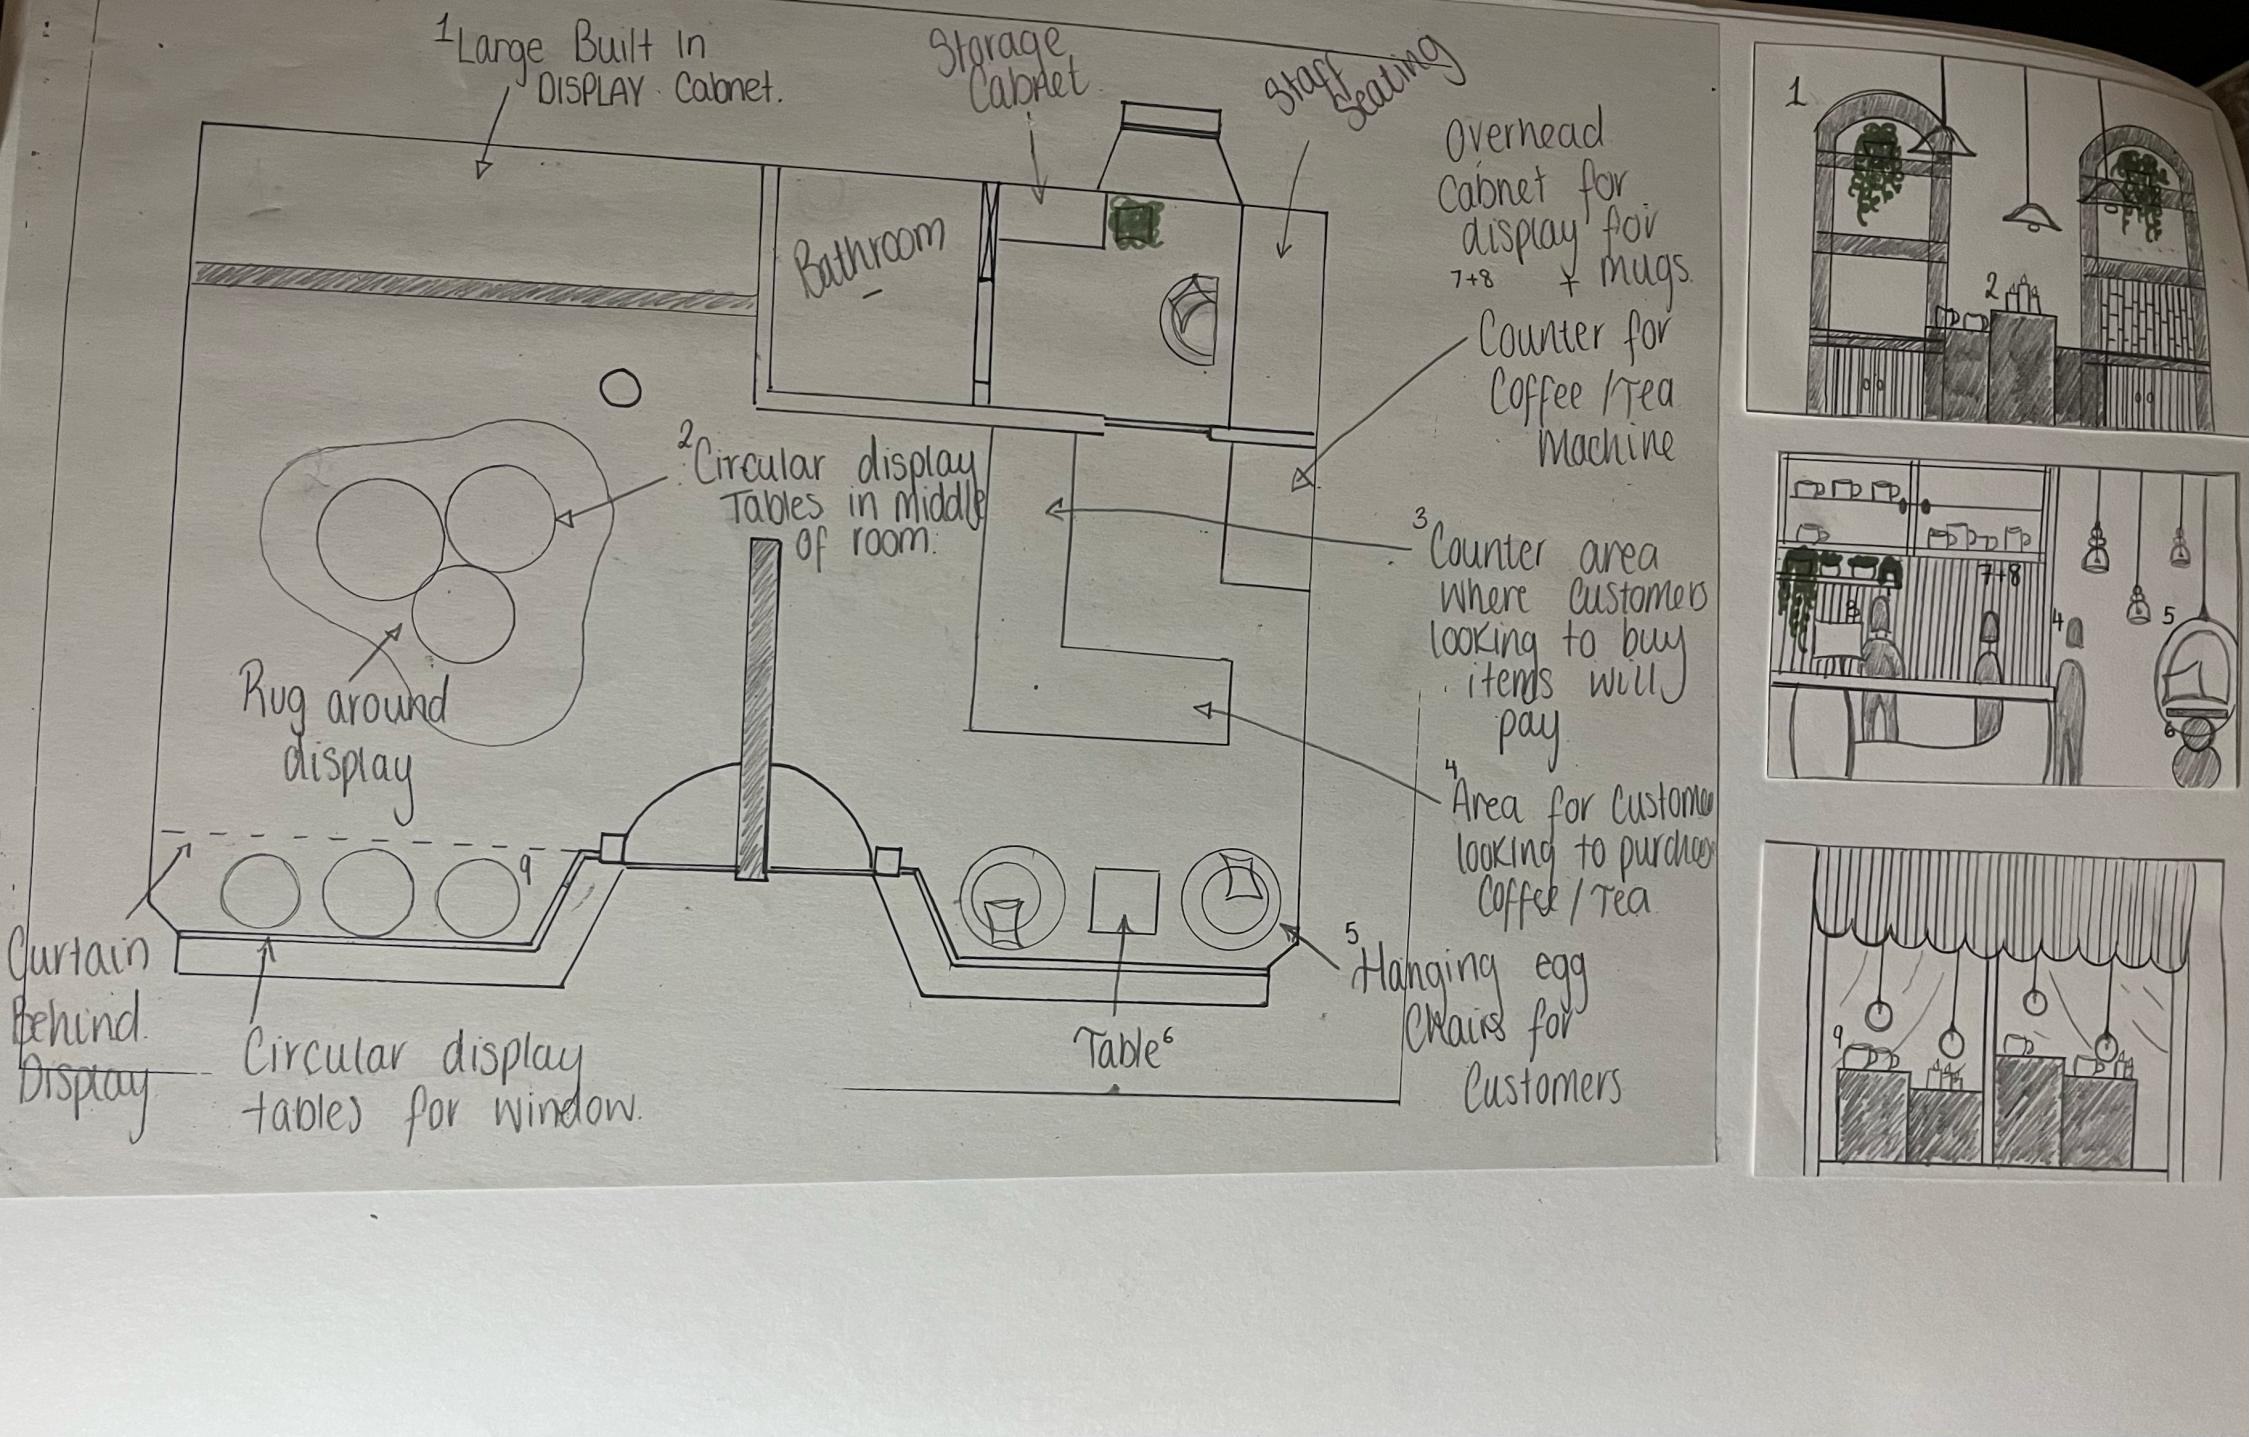 1 Large Built in
DISPLAY Cabnet.
Storage
Cabnet
Staff
Seating
Overhead
Cabnet for
display for
7+8 + mugs.
Bathroom
Counter for
Coffee / Tea
Machine
2 Circular display
Tables in middle
of room.
3 Counter area
where Customers
looking to buy
items will
pay.
Rug around
display
4 Area for Custome
looking to purchas
Coffee / Tea
9
Curtain
Behind
Display
Circular display
tables for window.
Table 6
5 Hanging egg
Chairs for
Customers
1
2
7+8
3
4
5
6
9